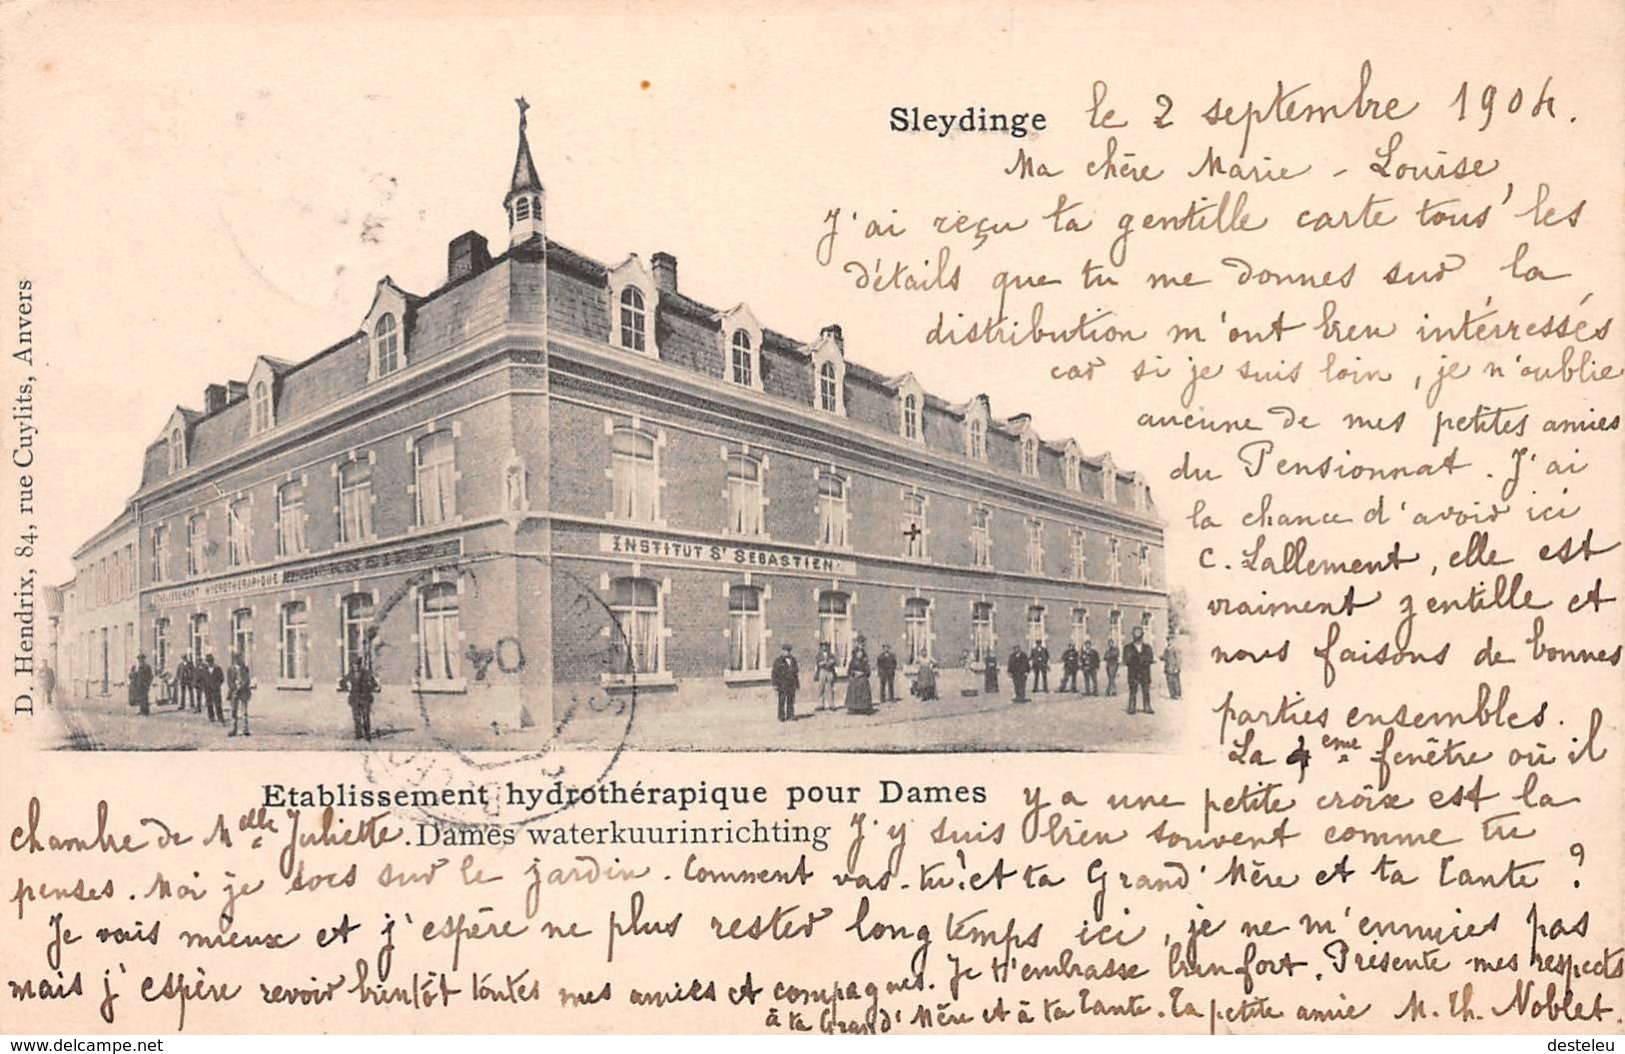 Sleydinge le 2 septembre 1904.
Ma chère Marie-Louise,
J'ai reçu ta gentille carte tous les
détails que tu me donnes sur la
distribution m'ont bien intérressés
car si je suis loin, je n'oublie
aucune de mes petites amies
du Pensionnat. J'ai
la chance d'avoir ici
C. Lallement, elle est
vraiment gentille et
nous faisons de bonnes
parties ensembles.
La 4eme fenêtre où il
y a une petite croix est la
chambre de Melle Juliette. J'y suis bien souvent comme tu
penses. Moi je donne sur le jardin. Comment vas-tu? et ta Grand'Mère et ta Tante?
Je vais mieux et j'espère ne plus rester longtemps ici, je ne m'ennuies pas
mais j'espère revoir bientôt toutes mes amies et compagnes. Je t'embrasse bien fort. Présente mes respects
à ta Grand'Mère et à ta Tante. Ta petite amie M. Th. Noblet.
INSTITUT St SEBASTIEN
ETABLISSEMENT HYDROTHERAPIQUE
04
Etablissement hydrothérapique pour Dames
Dames waterkuurinrichting
D. Hendrix, 84, rue Cuylits, Anvers
www.delcampe.net
desteleu